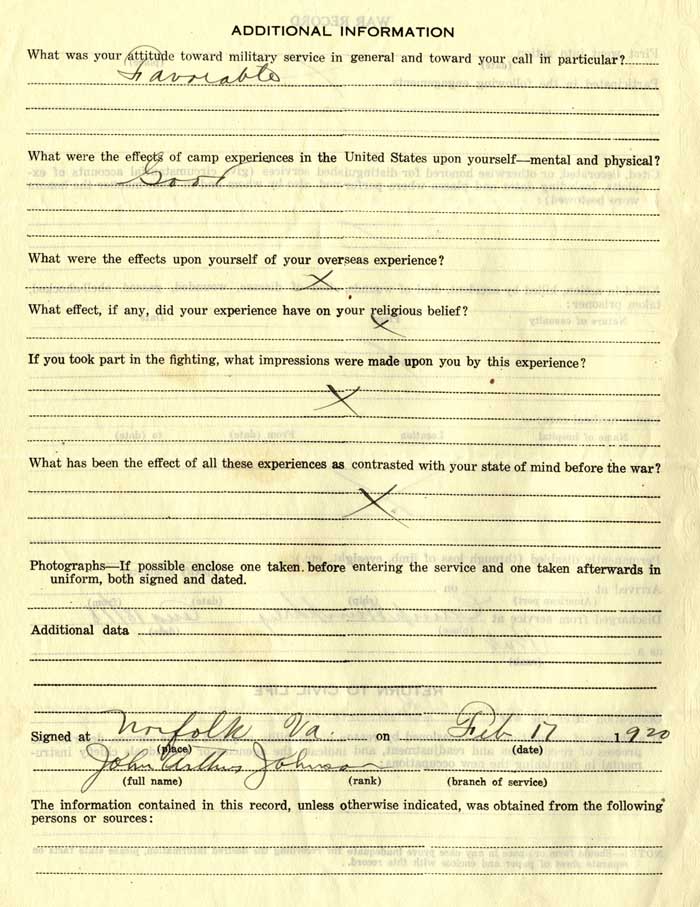 ADDITIONAL INFORMATION
What was your attitude toward military service in general and toward your call in particular?
Favorable
What were the effects of camp experiences in the United States upon yourself—mental and physical?
Good
What were the effects upon yourself of your overseas experience?
X
What effect, if any, did your experience have on your religious belief?
X
If you took part in the fighting, what impressions were made upon you by this experience?
X
What has been the effect of all these experiences as contrasted with your state of mind before the war?
X
Photographs—If possible enclose one taken before entering the service and one taken afterwards in
uniform, both signed and dated.
Additional data
Signed at Norfolk Va. on Feb 17 1920
(place) (date)
John Arthur Johnson
(full name) (rank) (branch of service)
The information contained in this record, unless otherwise indicated, was obtained from the following
persons or sources: